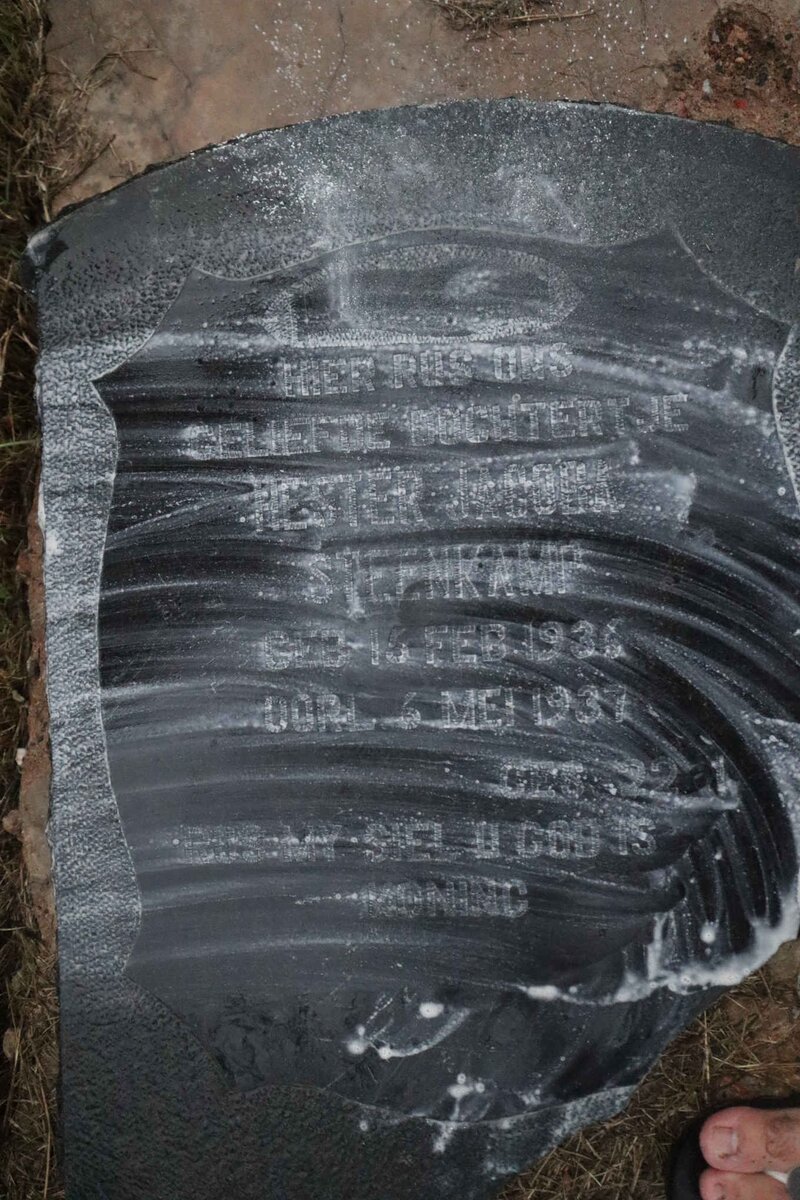 HIER RUS ONS
GELIEFDE DOGHTERTJE
HESTER JACOBA
STEENKAMP
GEB 16 FEB 1936
OORL 6 MEI 1937
GES 22
RUS MY SIEL U GOD IS
KONING